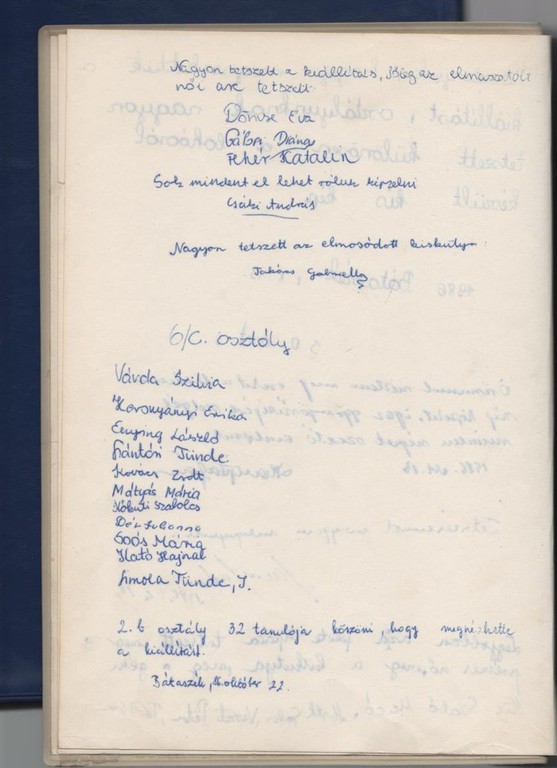 Nagyon tetszett a kiállítás, főleg az elmosódott
női arc tetszett.
Dörnse Éva
Gálosi Diána
Fehér Katalin
Sok mindent el lehet róluk képzelni
Csáki András
Nagyon tetszett az elmosódott kiskutya.
Takács Gabriella
6/C. osztály
Várda Szilvia
Korsnyánszi Erika
László
Hántósi Tünde
Kovács Zsolt
Mátyás Mária
Szabolcs
Deák Zsuzsanna
Soós Mária
Kató Hajnal
Simola Tünde, J.
2. b osztály 32 tanulója köszöni, hogy megnézhette
a kiállítást.
Bátaszék, október 22.